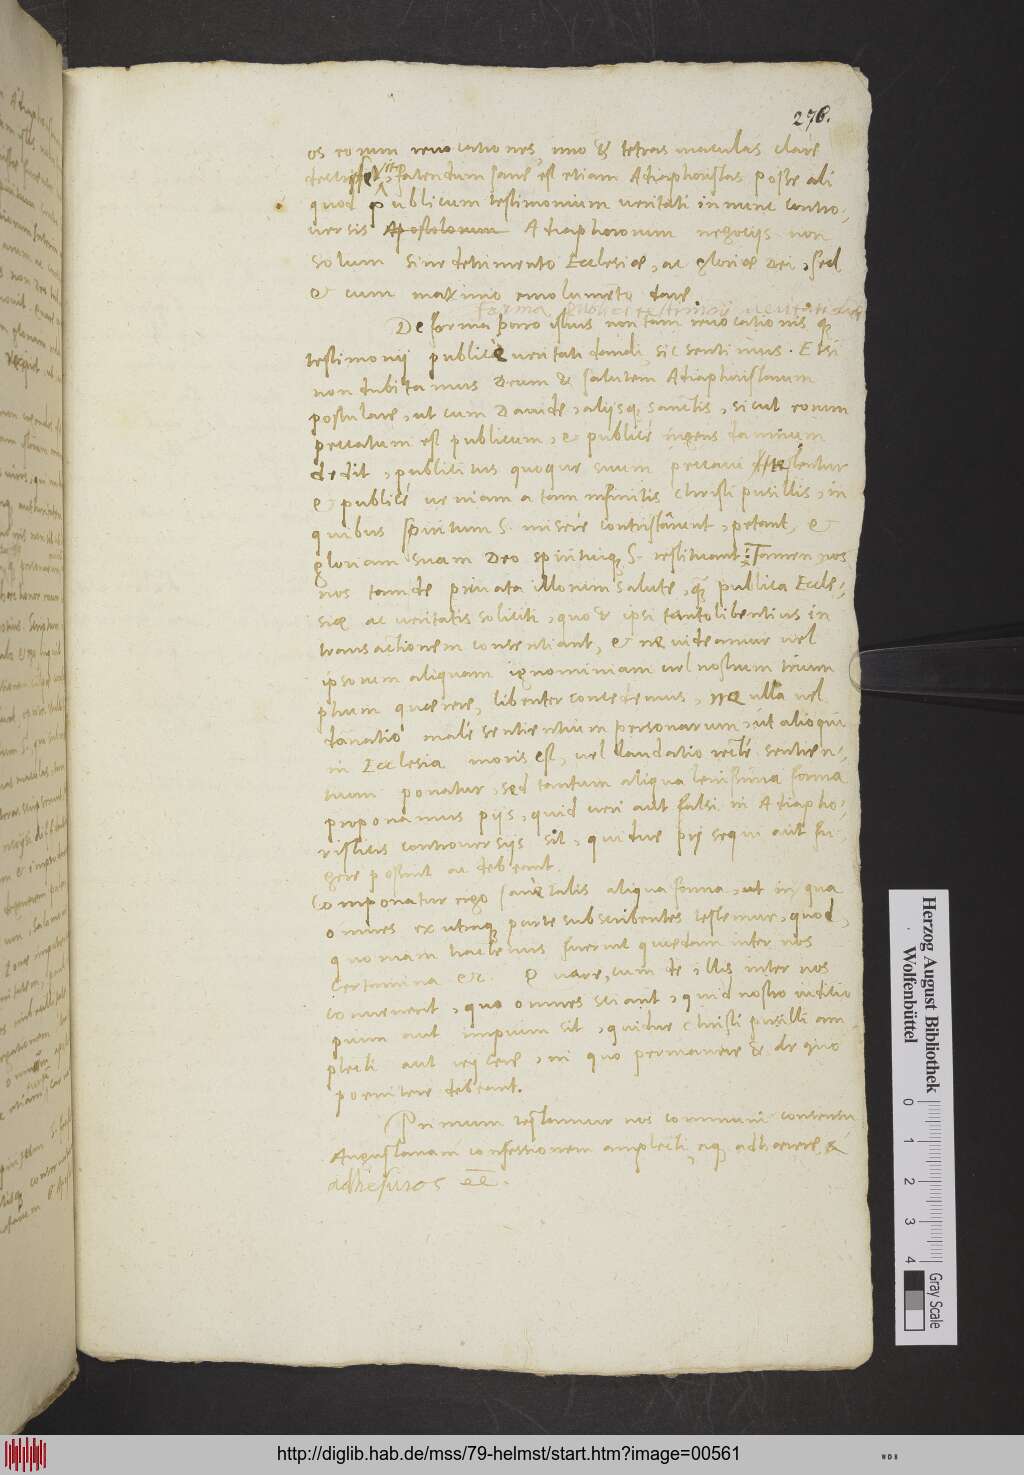 276.
os eorum revocationes, imo & tetras maculas clare
fatendum sane est etiam Adiaphoristas posse ali
quod publicum testimonium veritati in nunc contro-
versis Apostolorum Adiaphororum negocijs non
solum sine detrimento Ecclesiae, ac gloriae Dei, sed
& cum maximo emolumento dare.
forma publici testimonij veritati
De forma porro istius non tam revocationis q̃
testimonij publicè veritati dandi, sic sentimus. Etsi
non dubitamus Deum & salutem Adiaphoristarum
postulare, ut cum Davide, alijsq; sanctis, sicut eorum
peccatum est publicum, & publicè ingens damnum
dedit, publicitus quoque suum peccavi
& publicè veniam a tam infinitis Christi pusillis, in
quibus spiritum S. miserè contristârunt, petant, &
gloriam suam Deo spirituiq; S. restituant: Tamen nos
non tam de privata illorum salute, q̃ publica Eccle-
siae ac veritatis soliciti, quo & ipsi tanto libentius in
transactionem consentiant, & ne videamur vel
ipsorum aliquam ignominiam vel nostrum trium
phum quaerere, libenter concedemus, ne ulla vel
danatio malè sentientium personarum, ut alioqui
in Ecclesia moris est, vel laudatio rectè sentien-
tium ponatur, sed tantum aliqua lenissima forma
proponamus pijs, quid veri aut falsi in Adiapho-
risticis controversijs sit, quidve pij sequi aut fu-
gere possint ac debeant.
Componatur ergo sanè talis aliqua forma, ut in qua
omnes ex utraq; parte subscribentes testemur, quod,
quoniam hactenus fuerint quaedam inter nos
certamina &c. Quare, cum de illis inter nos
convenerit, quo omnes sciant, quid nostro iuditio
pium aut impium sit, quidve Christi pusilli am
plecti aut reijcere, in quo permanere & de quo
poenitere debeant.
Primum testamur nos communi consensu
Augustanam confessionem amplecti, eiq; adhaerere, &
adhesuros eē.
Herzog August Bibliothek
Wolfenbüttel
0 1 2 3 4
Gray Scale
http://diglib.hab.de/mss/79-helmst/start.htm?image=00561